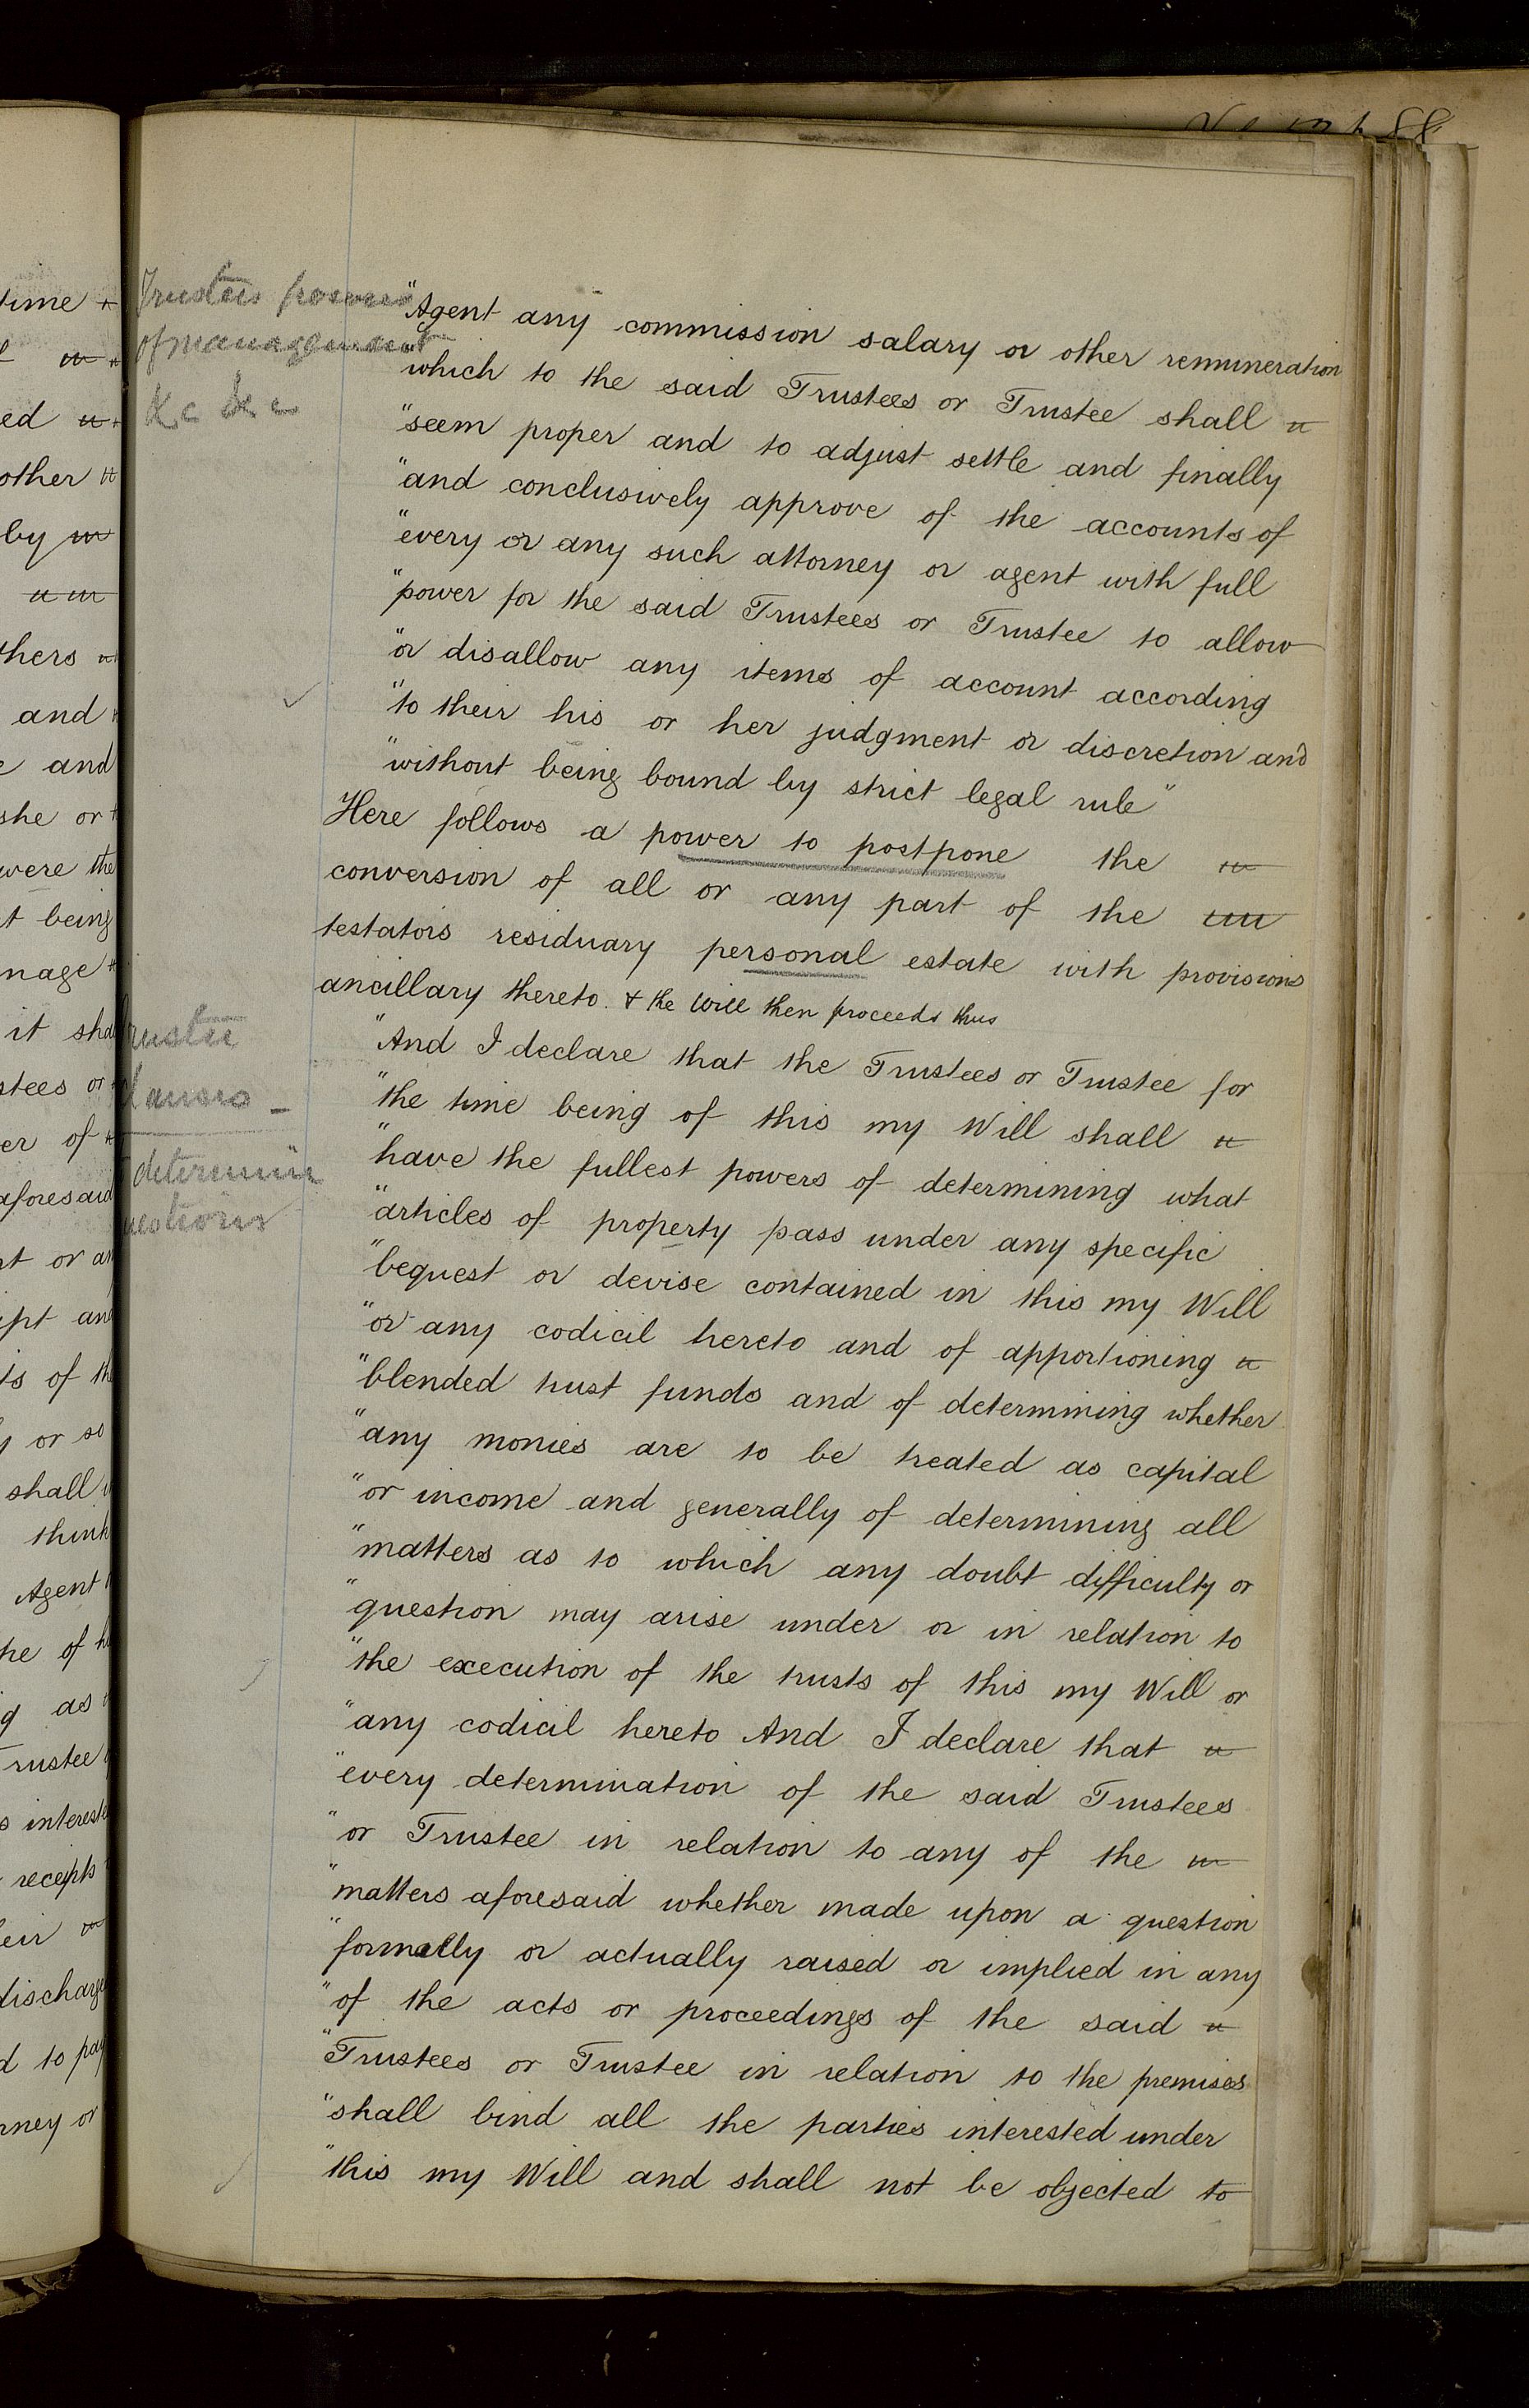 Trustees powers
of management
&c &c
"Agent any commission salary or other remuneration
"which to the said Trustees or Trustee shall
"seem proper and to adjust settle and finally
"and conclusively approve of the accounts of
"every or any such attorney or agent with full
"power for the said Trustees or Trustee to allow
"or disallow any items of account according
"to their his or her judgment or discretion and
"without being bound by strict legal rule"
Here follows a power to postpone the
conversion of all or any part of the
testators residuary personal estate with provisions
ancillary thereto. & the Will then proceeds thus
"And I declare that the Trustees or Trustee for
"the time being of this my Will shall
"have the fullest powers of determining what
"articles of property pass under any specific
"bequest or devise contained in this my Will
"or any codicil hereto and of apportioning
"blended trust funds and of determining whether
"any monies are to be treated as capital
"or income and generally of determining all
"matters as to which any doubt difficulty or
"question may arise under or in relation to
"the execution of the trusts of this my Will or
"any codicil hereto And I declare that
"every determination of the said Trustees
"or Trustee in relation to any of the
"matters aforesaid whether made upon a question
"formally or actually raised or implied in any
"of the acts or proceedings of the said
"Trustees or Trustee in relation to the premises
"shall bind all the parties interested under
"this my Will and shall not be objected to
determine
time
ed
other
by
thers
and
and
she or
were the
t being
nage
it sha
stees or
er of
aforesaid
t or an
ipt and
ts of th
or so
shall
think
Agent
he of h
as
rustee
interest
receipts
eir
discharge
d to pay
rney or